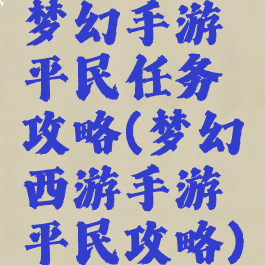 梦幻手游
平民任务
攻略(梦幻
西游手游
平民攻略)